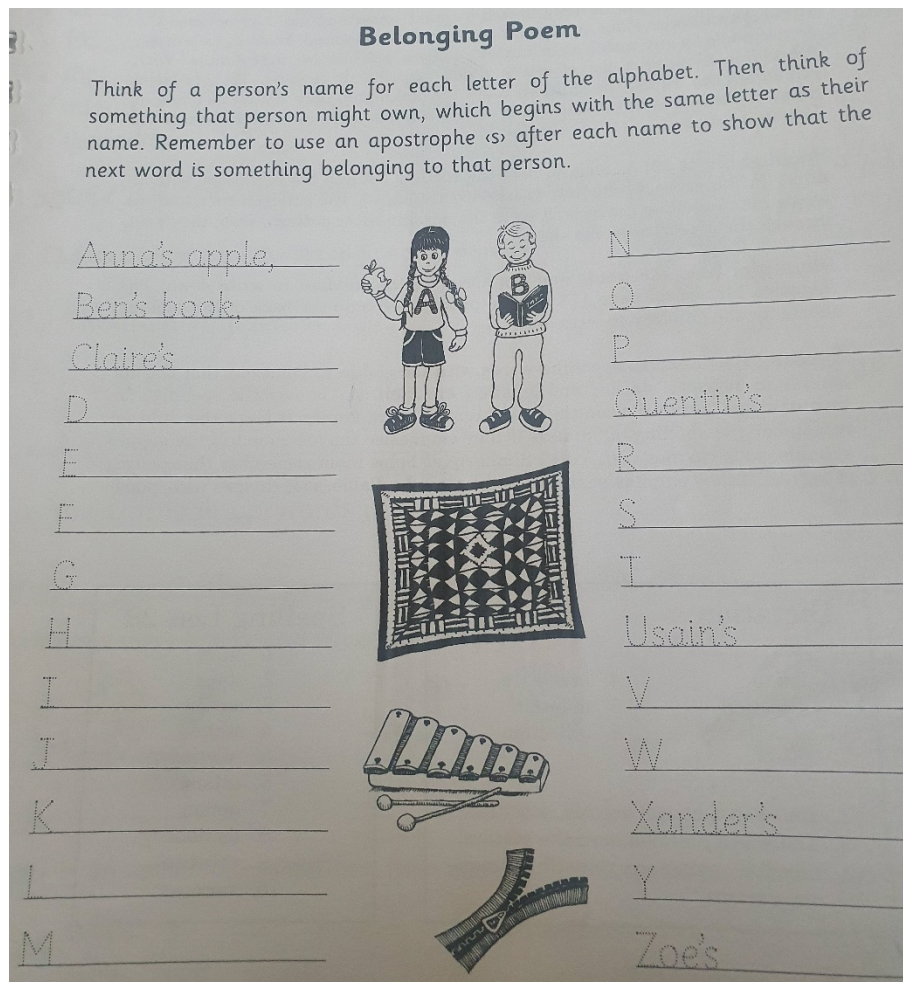 Belonging Poem
Think of a person's name for each letter of the alphabet. Then think of
something that person might own, which begins with the same letter as their
name. Remember to use an apostrophe ‹s› after each name to show that the
next word is something belonging to that person.
Anna's apple,
Ben's book,
Claire's
D
E
F
G
H
I
J
K
L
M
A
B
N
O
P
Quentin's
R
S
T
Usain's
V
W
Xander's
Y
Zoe's